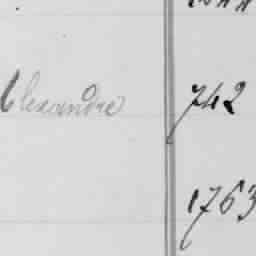 Alexandre 742
1763